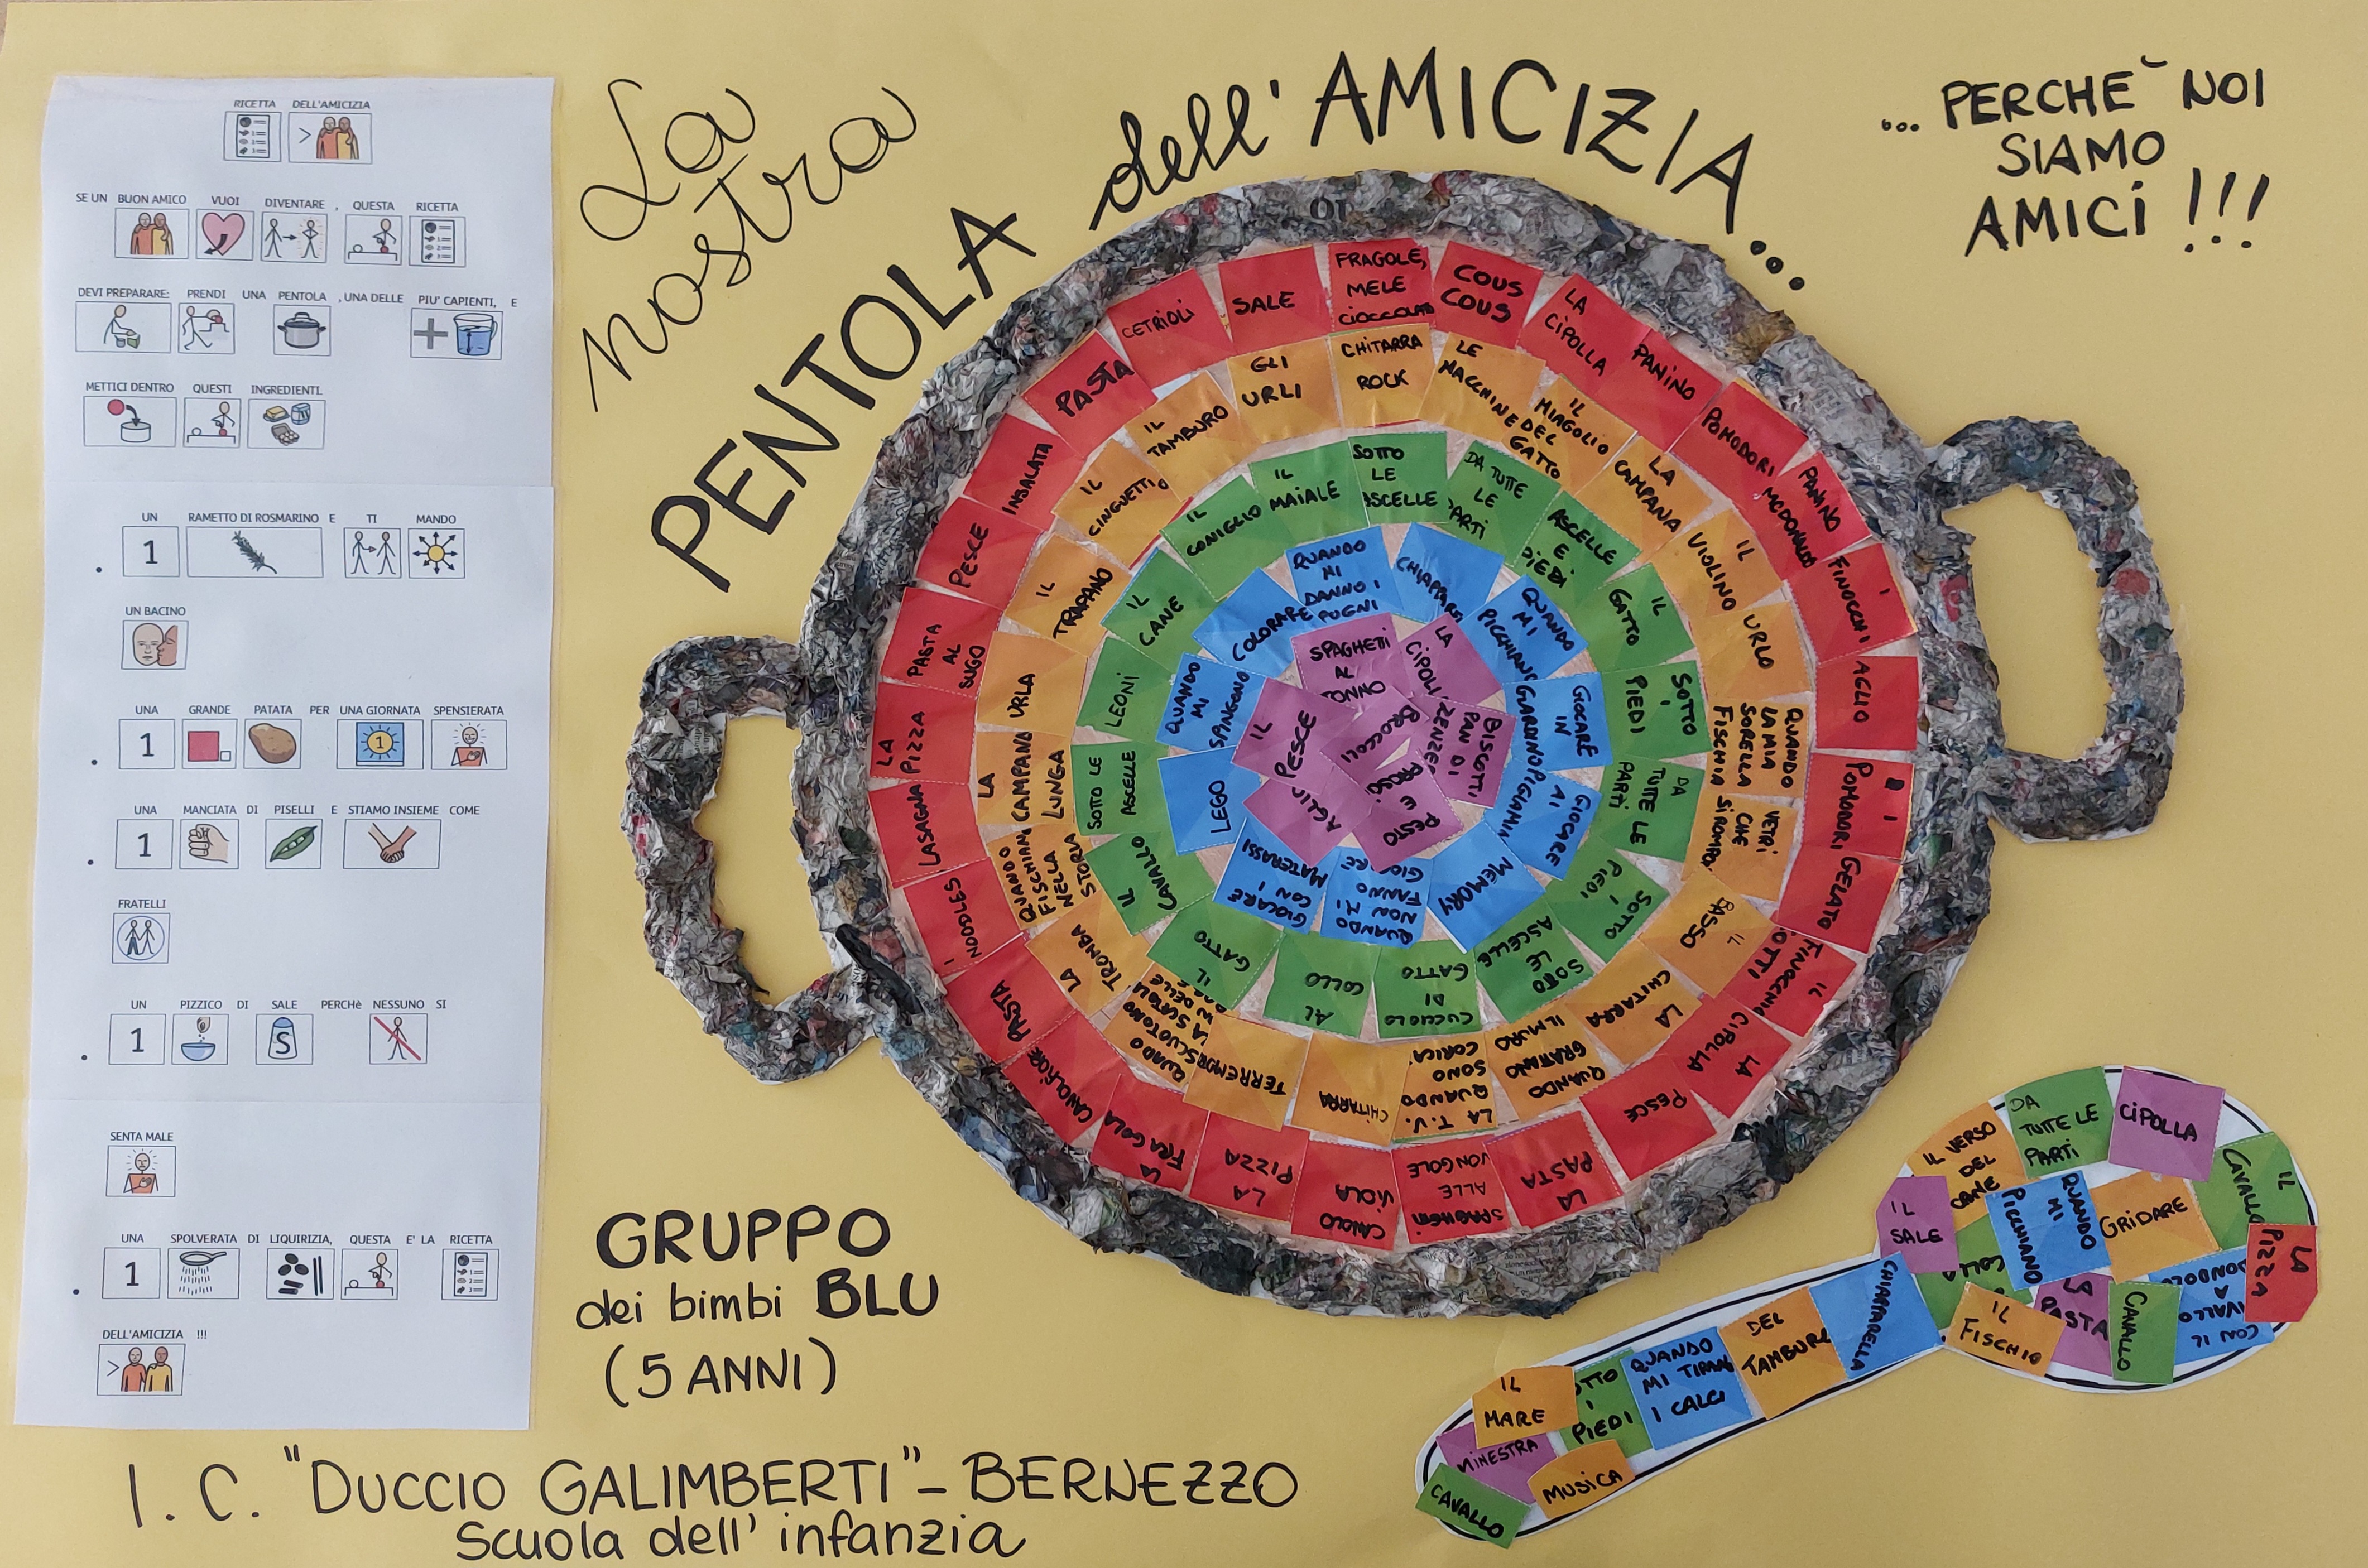 RICETTA DELL'AMICIZIA
SE UN BUON AMICO VUOI DIVENTARE , QUESTA RICETTA
DEVI PREPARARE: PRENDI UNA PENTOLA , UNA DELLE PIU' CAPIENTI, E
METTICI DENTRO QUESTI INGREDIENTI.
UN RAMETTO DI ROSMARINO E TI MANDO
1
UN BACINO
UNA GRANDE PATATA PER UNA GIORNATA SPENSIERATA
1 1
UNA MANCIATA DI PISELLI E STIAMO INSIEME COME
1
FRATELLI
UN PIZZICO DI SALE PERCHè NESSUNO SI
1 S
SENTA MALE
UNA SPOLVERATA DI LIQUIRIZIA, QUESTA E' LA RICETTA
1
DELL'AMICIZIA !!!
La
nostra
PENTOLA dell'AMICIZIA...
... PERCHE` NOI
SIAMO
AMICI !!!
FRAGOLE,
MELE
CIOCCOLATO
COUS
COUS
LA
CIPOLLA
PANINO
POMODORI
PANINO
MCDONALDS
I
FINOCCHI
AGLIO
I
POMODORI
GELATO
IL
FINOCCHIO
LA
CIPOLLA
PESCE
LA
PASTA
SPAGHETTI
ALLE
VONGOLE
CAVOLO
VIOLA
LA
PIZZA
LA
FRAGOLA
CAVOLFIORE
PASTA
I
NOODLES
LASAGNA
LA
PIZZA
PASTA
AL
SUGO
PESCE
INSALATA
PASTA
CETRIOLI
SALE
CHITARRA
ROCK
LE
MACCHINE
IL
MIAGOLIO
DEL
GATTO
LA
CAMPANA
IL
VIOLINO
URLO
QUANDO
LA MIA
SORELLA
FISCHIA
VETRI
CHE
IL
BASSO
LA
CHITARRA
QUANDO
GRATTANO
IL MURO
LA T.V.
QUANDO
SONO
CHITARRA
LA
TROMBA
QUANDO
FISCHIANO
NELLA
STORIA
LA
CAMPANA
LUNGA
URLA
IL
TRAPANO
IL
CINGUETTIO
IL
TAMBURO
GLI
URLI
SOTTO
LE
ASCELLE
DA TUTTE
LE
PARTI
ASCELLE
E
PIEDI
IL
GATTO
SOTTO
I
PIEDI
DA
TUTTE LE
PARTI
SOTTO
I
PIEDI
SOTTO
LE
ASCELLE
CUCCIOLO
DI
GATTO
AL
COLLO
IL
GATTO
IL
CAVALLO
SOTTO LE
ASCELLE
LEONI
IL
CANE
IL
CONIGLIO
IL
MAIALE
QUANDO
MI
DANNO I
PUGNI
QUANDO
MI
PICCHIANO
GIOCARE
IN
GIARDINO
GIOCARE
AI
PIGIAMINI
MEMORY
QUANDO
NON MI
FANNO
GIOCARE
GIOCARE
CON I
MATERASSI
LEGO
QUANDO
MI
SPINGONO
COLORARE
SPAGHETTI
AL
TONNO
LA
BISCOTTI
PAN DI
ZENZERO
BROCCOLI
E
PESTO
AGLIO
IL
PESCE
GRUPPO
dei bimbi BLU
(5 ANNI)
IL VERSO
DEL
CANE
DA
TUTTE LE
PARTI
CIPOLLA
IL
CAVALLO
IL
SALE
QUANDO
MI
PICCHIANO
GRIDARE
LA
PIZZA
IL
FISCHIO
LA
PASTA
CAVALLO
CON IL
CAVALLO
A
DONDOLO
CHIAPPARELLA
DEL
TAMBURO
QUANDO
MI TIRANO
I CALCI
SOTTO
I
PIEDI
IL
MARE
MINESTRA
MUSICA
CAVALLO
I.C. "DUCCIO GALIMBERTI" - BERNEZZO
Scuola dell'infanzia